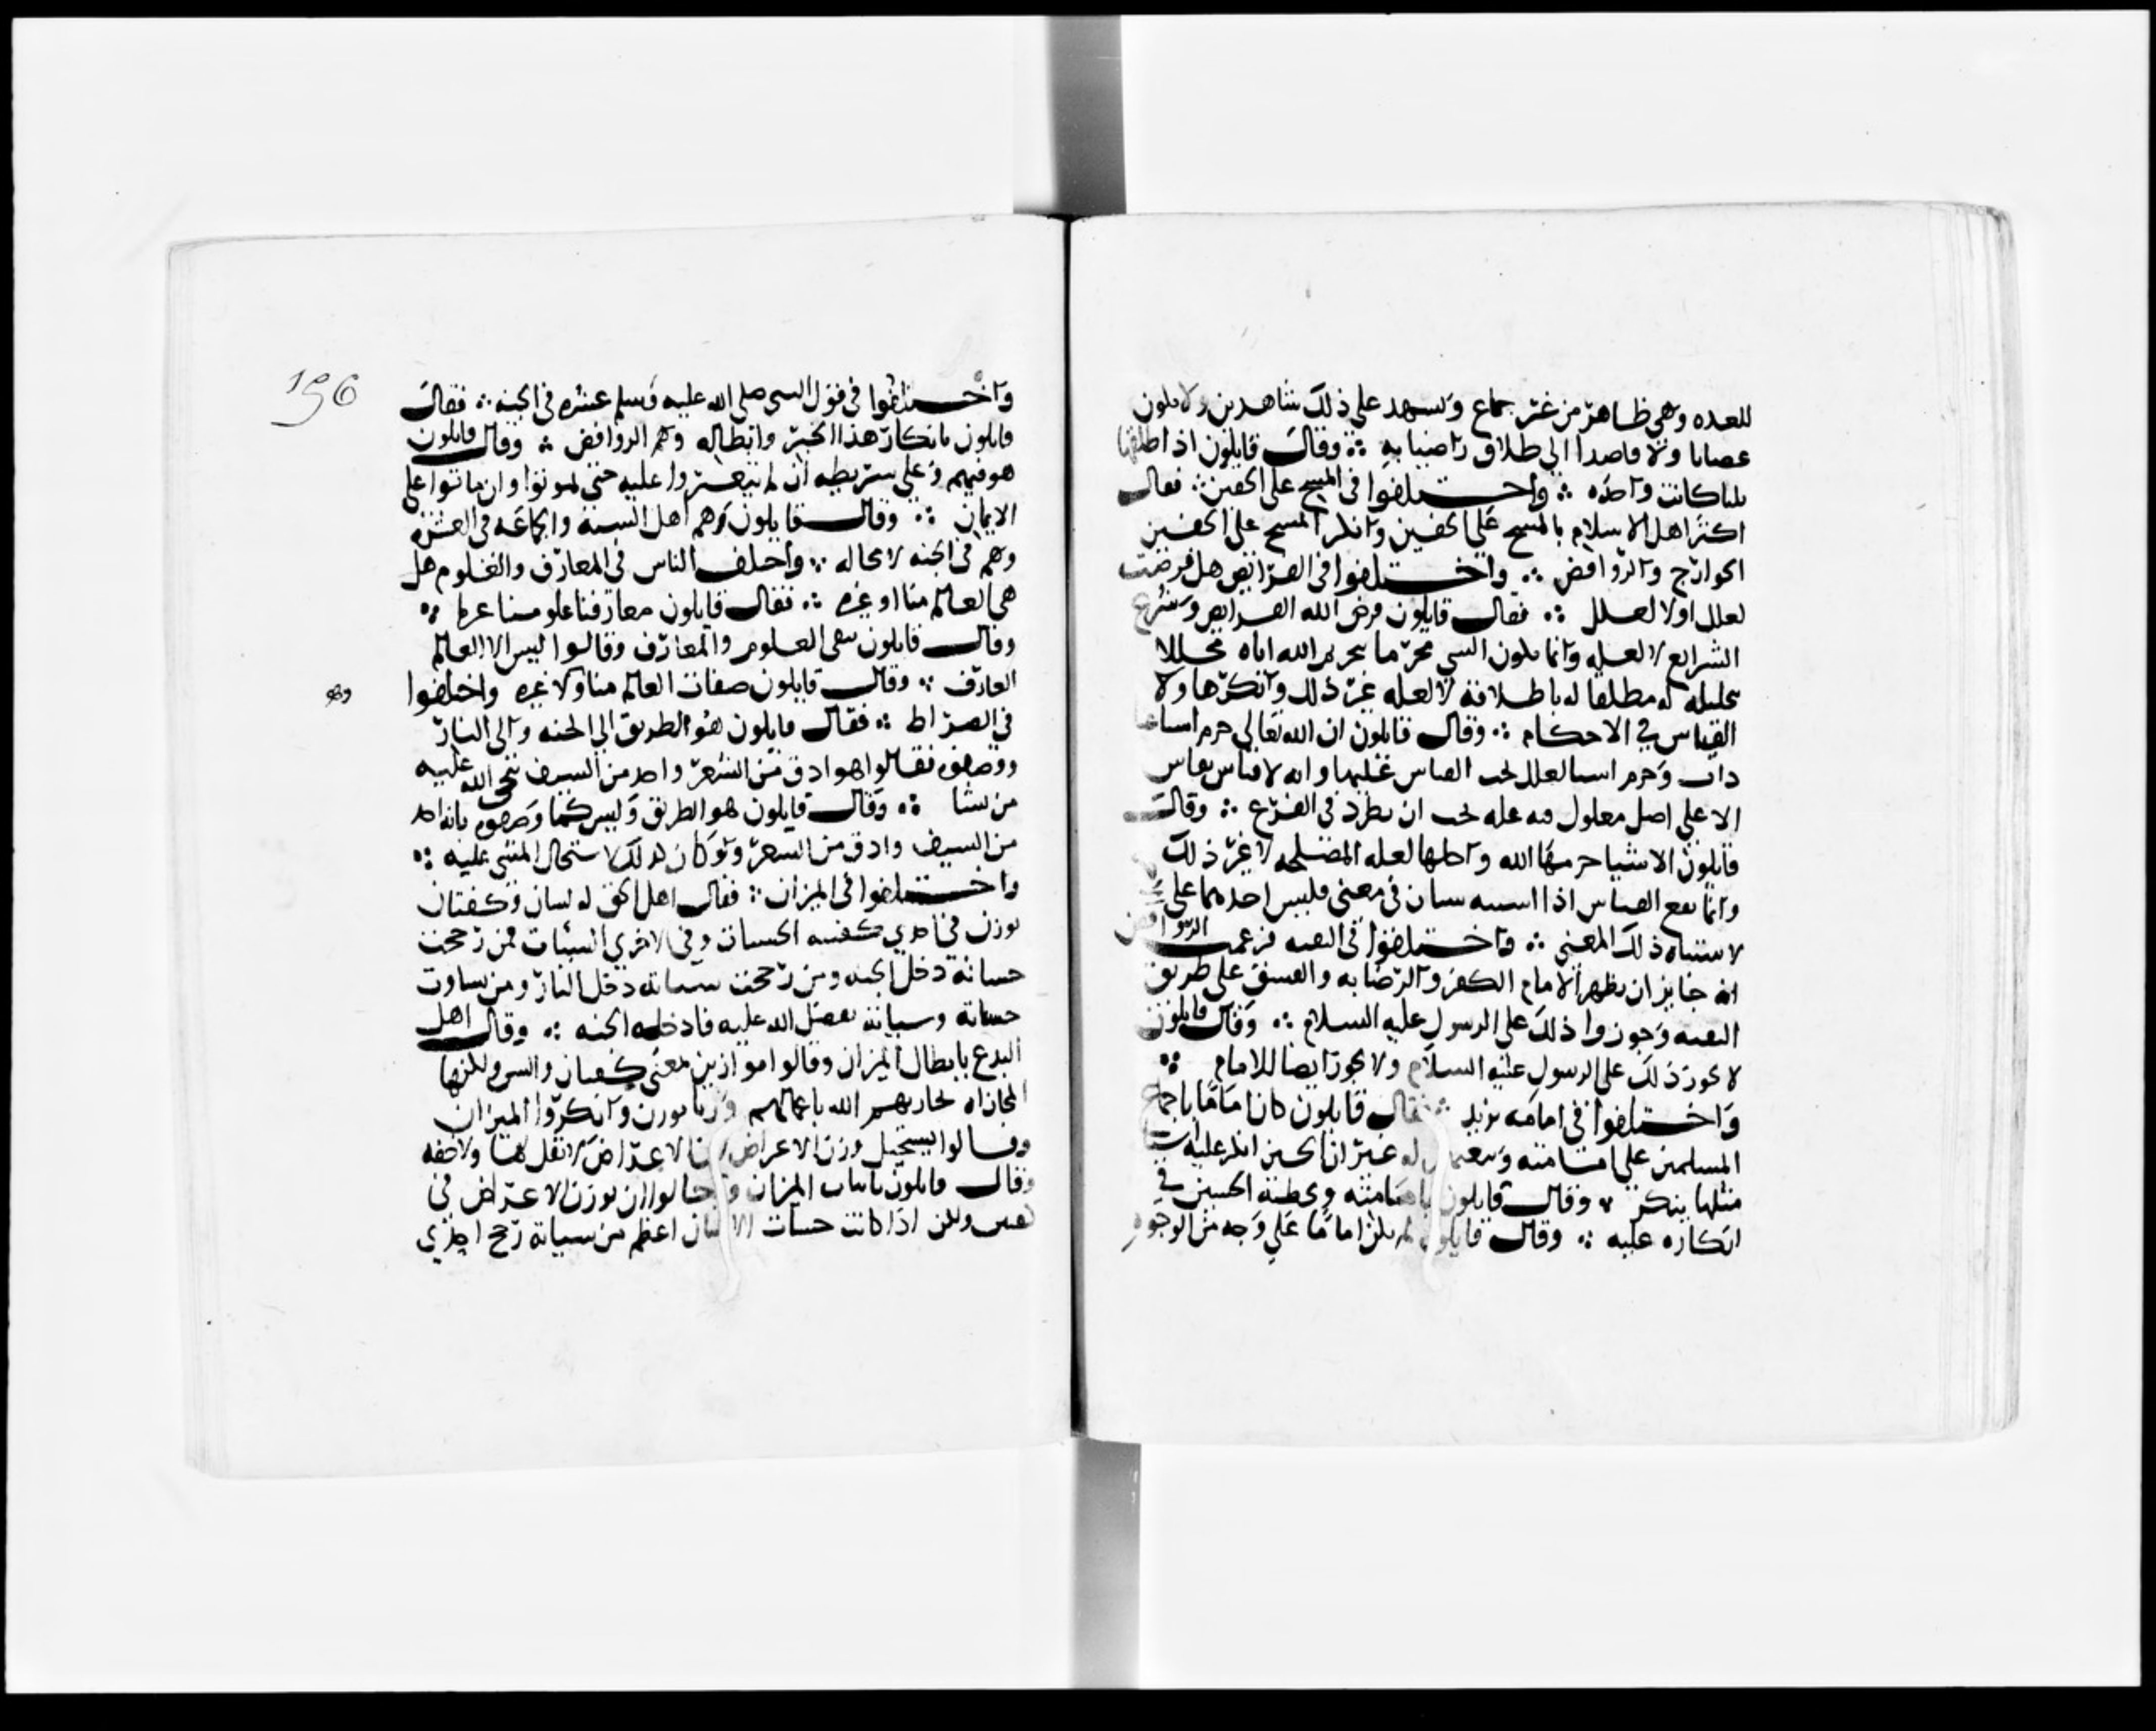 للعده وهي ظاهر من غير جماع ويشهد على ذلك شاهدين ولا يكون
غضبانا ولا قاصدا الي طلاق راضيا به ∴ وقال قايلون اذا طلقها
ثلثا كانت واحده ∴ واختلفوا في المسح على الخفين ∴ فقال
اكثر اهل الاسلام بالمسح على الخفين وانكر المسح على الخفين
الخوارج والروافض ∴ واختلفوا في الفرائض هل فرضت
لعلل او لا لعلل ∴ فقال قايلون فرض الله الفرايض وشرع
الشرايع لا لعله وانما يكون الشي محرما بتحريم الله اياه محللا
بتحليله له مطلقا له باطلاقه لا لعله غير ذلك وانكر هاولا
القياس في الاحكام ∴ وقال قايلون ان الله تعالى حرم اشيا
وحرم اشيا لعلل يجب القياس عليها وانه لا قياس يقاس
الا علي اصل معلول فيه عله يجب ان يطرد في الفرع ∴ وقال
قايلون الاشيا حرمها الله واحلها لعله المصلحه لا غير ذلك
وانما يقع القياس اذا اشتبه شيان في معنى فليس احدهما على
لاشتباه ذلك المعني ∴ واختلفوا في التقيه فزعمت الروافض
انه جايز ان يظهر الامام الكفر والرضا به والفسق على طريق
التقيه وجوزوا ذلك على الرسول عليه السلام ∴ وقال قايلون
لا يجوز ذلك على الرسول عليه السلام ولا يجوز ايضا للامام ∴
واختلفوا في امامه يزيد ∴ فقال قايلون كان اماما باجماع
المسلمين على امامته وبيعتهم له غير ان الحسين انكر عليه اشيا
مثلها ينكر ∴ وقال قايلون بامامته وبخطئة الحسين في
انكاره عليه ∴ وقال قايلون لم يكن اماما علي وجه من الوجوه
196
واختلفوا في قول النبي صلى الله عليه وسلم عشره في الجنه ∴ فقال
قايلون بانكار هذا الخبر وابطاله وهم الروافض ∴ وقال قايلون
هو فيهم وعلى شريطه ان لم يتغيروا عليه حتى يموتوا وان ماتوا على
الايمان ∴ وقال قايلون وهم اهل السنة والجماعه في العشره
وهم في الجنه لا محاله ∴ واختلف الناس في المعارف والعلوم هل
هي العالم منا او غيره ∴ فقال قايلون معارفنا وعلومنا غيرنا ∴
وقال قايلون بنفى العلوم والمعارف وقالوا ليس الا العالم
العارف ∴ وقال قايلون صفات العالم منا ولا غيره واختلفوا
في الصراط ∴ فقال قايلون هو الطريق الي الجنه والى النار
ووصفوه فقالوا هو ادق من الشعر واحد من السيف ينجي الله عليه
من يشا ∴ وقال قايلون هو الطريق وليس كما وصفوه بانه احد
من السيف وادق من الشعر ولو كان كذلك لاستحال المشى عليه ∴
واختلفوا في الميزان ∴ فقال اهل الحق له لسان وكفتان
توزن في احدي كفتيه الحسنات وفي الاخري السيئات فمن رجحت
حسناته دخل الجنه ومن رجحت سيئاته دخل النار ومن تساوت
حسناته وسياته تفضل الله عليه فادخله الجنه ∴ وقال اهل
البدع بابطال الميزان وقالوا موازين معنى كفتان والسن ولكنها
المجازاه يجازيهم الله باعمالهم وزنا بوزن وانكروا الميزان
وقالوا يستحيل وزن الاعراض لان الاعراض لا ثقل لها ولا خفه
وقال قايلون باثبات الميزان واحالوا ان توزن الاعراض في
كفتين ولكن اذا كانت حسنات الانسان اعظم من سياته رجح احدي